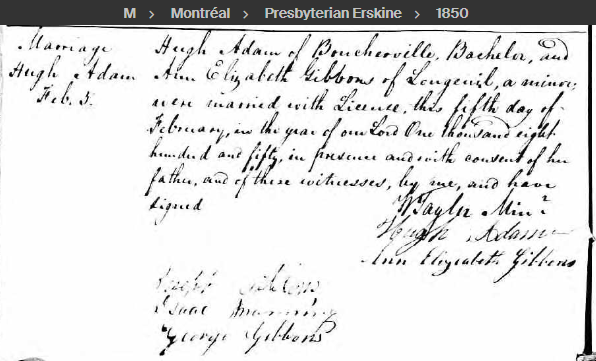 M > Montréal > Presbyterian Erskine > 1850
Marriage
Hugh Adam
Feb. 5.
Hugh Adam of Boucherville, Bachelor, and
Ann Elizabeth Gibbons of Longeuil, a minor,
were married with Licence, this fifth day of
February, in the year of our Lord One thousand eight
hundred and fifty, in presence and with consent of her
father, and of these witnesses, by me, and have
signed
W Taylor Minr
Hugh Adam
Ann Elizabeth Gibbons
Joseph Gibbons
Isaac Manning
George Gibbons